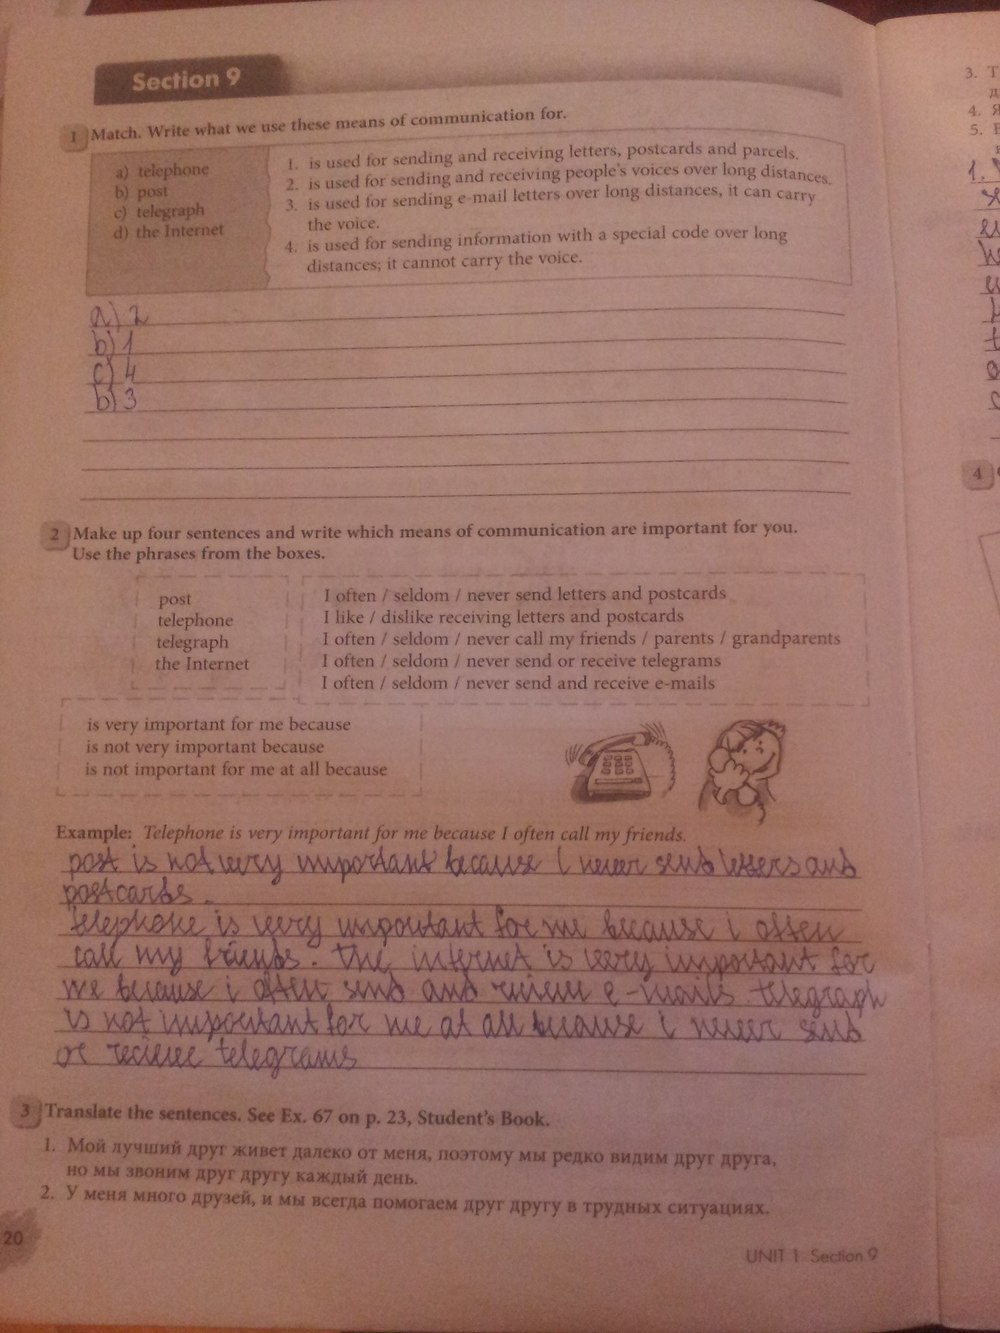 Section 9
1 Match. Write what we use these means of communication for.
a) telephone
b) post
c) telegraph
d) the Internet
1. is used for sending and receiving letters, postcards and parcels.
2. is used for sending and receiving people's voices over long distances.
3. is used for sending e-mail letters over long distances, it can carry
the voice.
4. is used for sending information with a special code over long
distances; it cannot carry the voice.
a) 2
b) 1
c) 4
b) 3
2 Make up four sentences and write which means of communication are important for you.
Use the phrases from the boxes.
post
telephone
telegraph
the Internet
I often / seldom / never send letters and postcards
I like / dislike receiving letters and postcards
I often / seldom / never call my friends / parents / grandparents
I often / seldom / never send or receive telegrams
I often / seldom / never send and receive e-mails
is very important for me because
is not very important because
is not important for me at all because
Example: Telephone is very important for me because I often call my friends.
post is not very important because I never send letters and
postcards.
Telephone is very important for me because i often
call my friends. The internet is very important for
me because i often send and recieve e-mails. telegraph
is not important for me at all because i never send
or recieve telegrams
3 Translate the sentences. See Ex. 67 on p. 23, Student's Book.
1. Мой лучший друг живет далеко от меня, поэтому мы редко видим друг друга,
но мы звоним друг другу каждый день.
2. У меня много друзей, и мы всегда помогаем друг другу в трудных ситуациях.
20
UNIT 1 Section 9
3. Т
4. Я
5.
1.
4